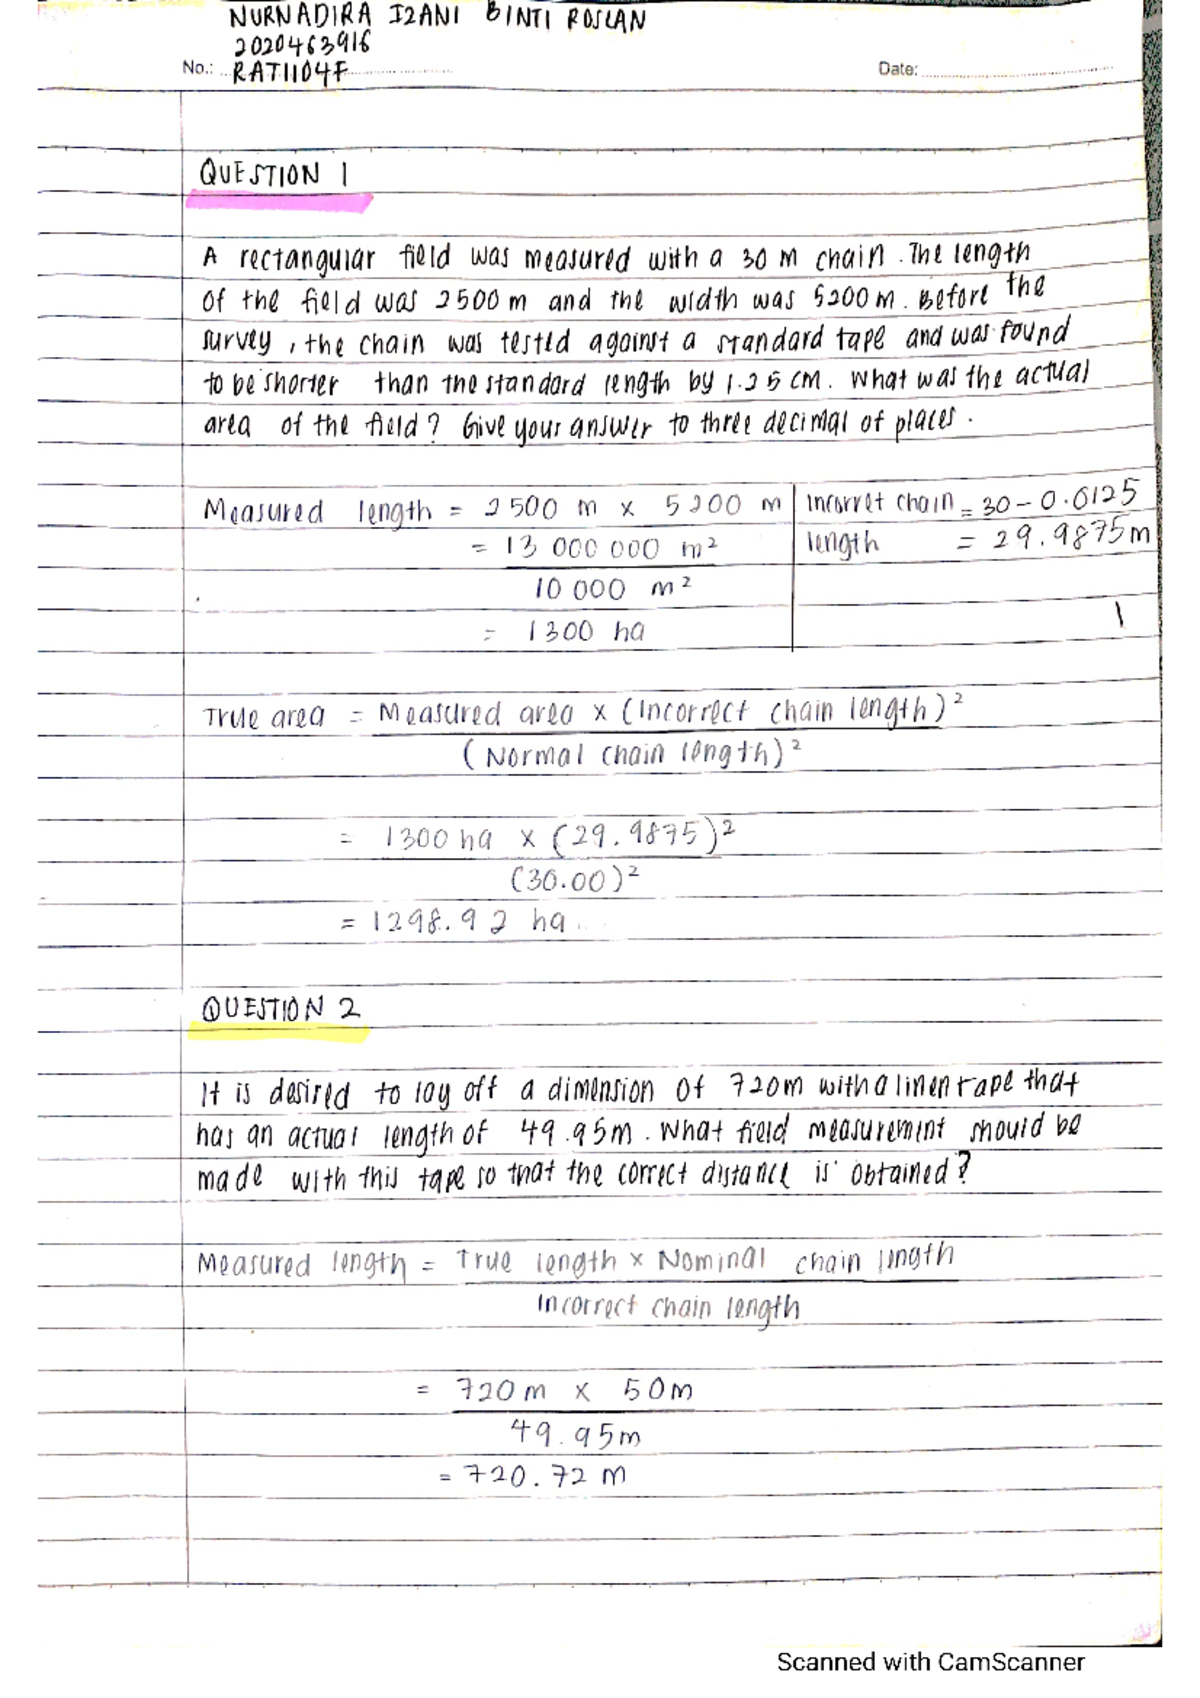 NURNADIRA IZANI BINTI ROSLAN
2020463916
No.: RAT1104F Date:
QUESTION 1
A rectangular field was measured with a 30 m chain. The length
of the field was 2500 m and the width was 5200 m. Before the
survey, the chain was tested against a standard tape and was found
to be shorter than the standard length by 1.25 cm. What was the actual
area of the field? Give your answer to three decimal of places.
Measured length = 2500 m x 5200 m
= 13 000 000 m²
10 000 m²
= 1300 ha
Incorret chain = 30 - 0.0125
length = 29.9875 m
1
True area = Measured area x (Incorrect chain length)²
(Normal chain length)²
= 1300 ha x (29.9875)²
(30.00)²
= 1298.92 ha.
QUESTION 2
It is desired to lay off a dimension of 720m with a linen tape that
has an actual length of 49.95m. What field measurement should be
made with this tape so that the correct distance is obtained?
Measured length = True length x Nominal chain length
Incorrect chain length
= 720 m x 50m
49.95m
= 720.72 m
Scanned with CamScanner